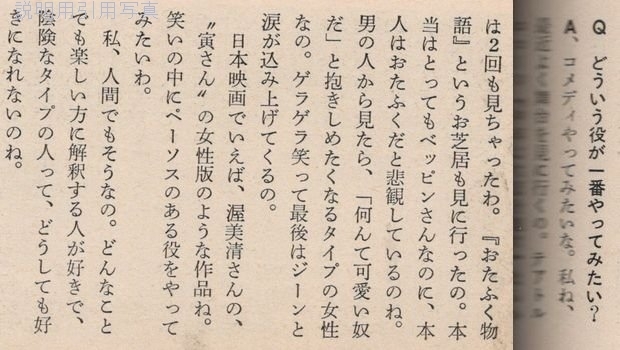 説明用引用写真
Q どういう役が一番やってみたい?
A、コメディやってみたいな。私ね、
は2回も見ちゃったわ。『おたふく物
語』というお芝居も見に行ったの。本
当はとってもベッピンさんなのに、本
人はおたふくだと悲観しているのね。
男の人から見たら、「何んて可愛い奴
だ」と抱きしめたくなるタイプの女性
なの。ゲラゲラ笑って最後はジーンと
涙が込み上げてくるの。
日本映画でいえば、渥美清さんの、
〝寅さん〟の女性版のような作品ね。
笑いの中にペーソスのある役をやって
みたいわ。
私、人間でもそうなの。どんなこと
でも楽しい方に解釈する人が好きで、
陰険なタイプの人って、どうしても好
きになれないのね。